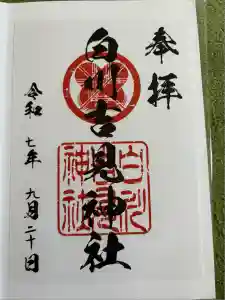 奉拝
白川吉見神社
令和 七年 九月 二十日